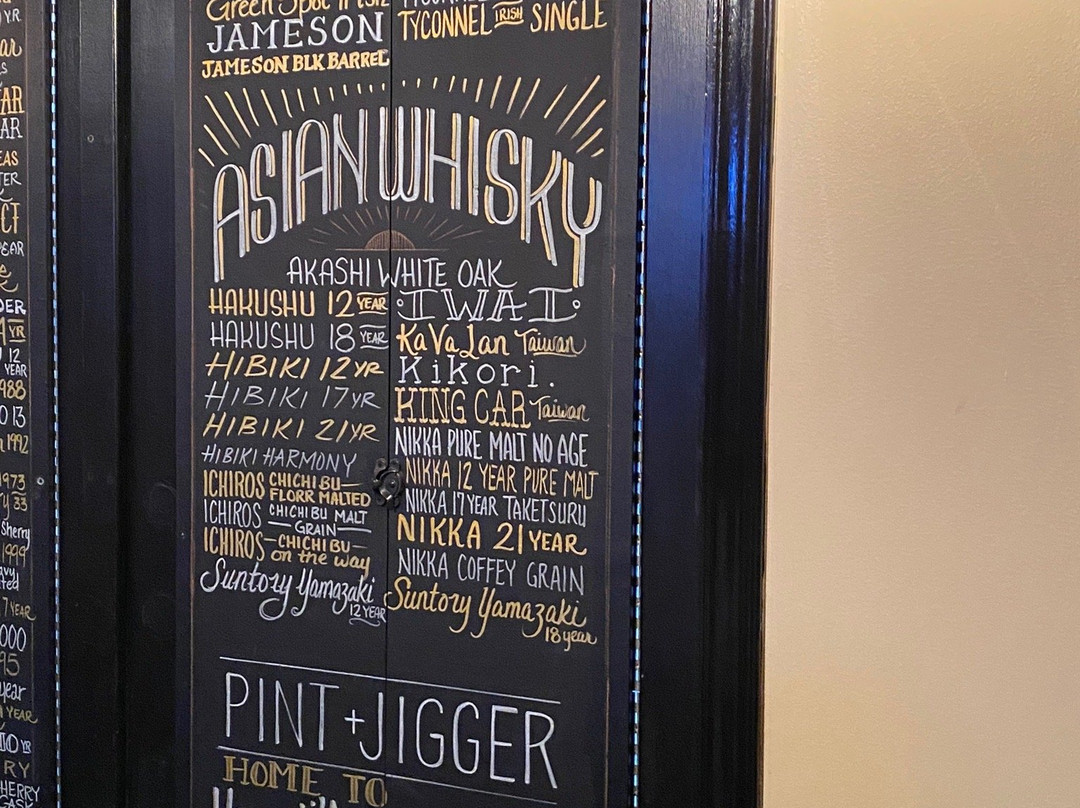 Green Spot Irish
JAMESON
JAMESON BLK BARREL
TYCONNEL IRISH SINGLE
ASIAN WHISKY
AKASHI WHITE OAK
HAKUSHU 12 YEAR
HAKUSHU 18 YEAR
HIBIKI 12 YR
HIBIKI 17 YR
HIBIKI 21 YR
HIBIKI HARMONY
ICHIROS CHICHIBU
FLORR MALTED
ICHIROS CHICHIBU MALT
GRAIN
ICHIROS CHICHIBU
on the way
Suntory Yamazaki
12 YEAR
IWAI
KaVaLan Taiwan
Kikori.
KING CAR Taiwan
NIKKA PURE MALT NO AGE
NIKKA 12 YEAR PURE MALT
NIKKA 17 YEAR TAKETSURU
NIKKA 21 YEAR
NIKKA COFFEY GRAIN
Suntory Yamazaki
18 year
PINT + JIGGER
HOME TO
YR
AR
12
YEAR
988
13
1992
1973
33
Sherry
1999
7 YEAR
000
95
year
YEAR
10 YR
RY
HERRY
CASK